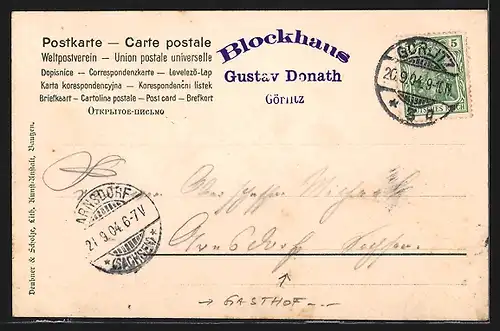 Postkarte — Carte postale
Weltpostverein — Union postale universelle
Dopisnice — Correspondenzkarte — Levelező-Lap
Karta korespondencyjna — Korespondenční listek
Briefkaart — Cartolina postale — Post card — Brefkort
ОТКРЫТОЕ ПИСЬМО
Blockhaus
Gustav Donath
Görlitz
5
GÖRLITZ
20.9.04.9-10N
* 2 g
ARNSDORF
21.9.04.6-7V
* (SACHSEN) *
Arnsdorf Sachsen
→ GASTHOF
Deubner & Scholze, Lith. Kunst-Anstalt, Bautzen.